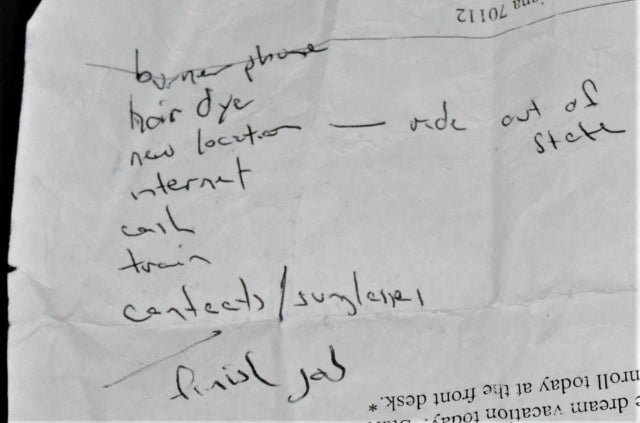 iana 70112
burner phone
hair dye
new location — ride out of
state
internet
cash
train
contacts/sunglasses
finish job
nroll today at the front desk.*
e dream vacation today.